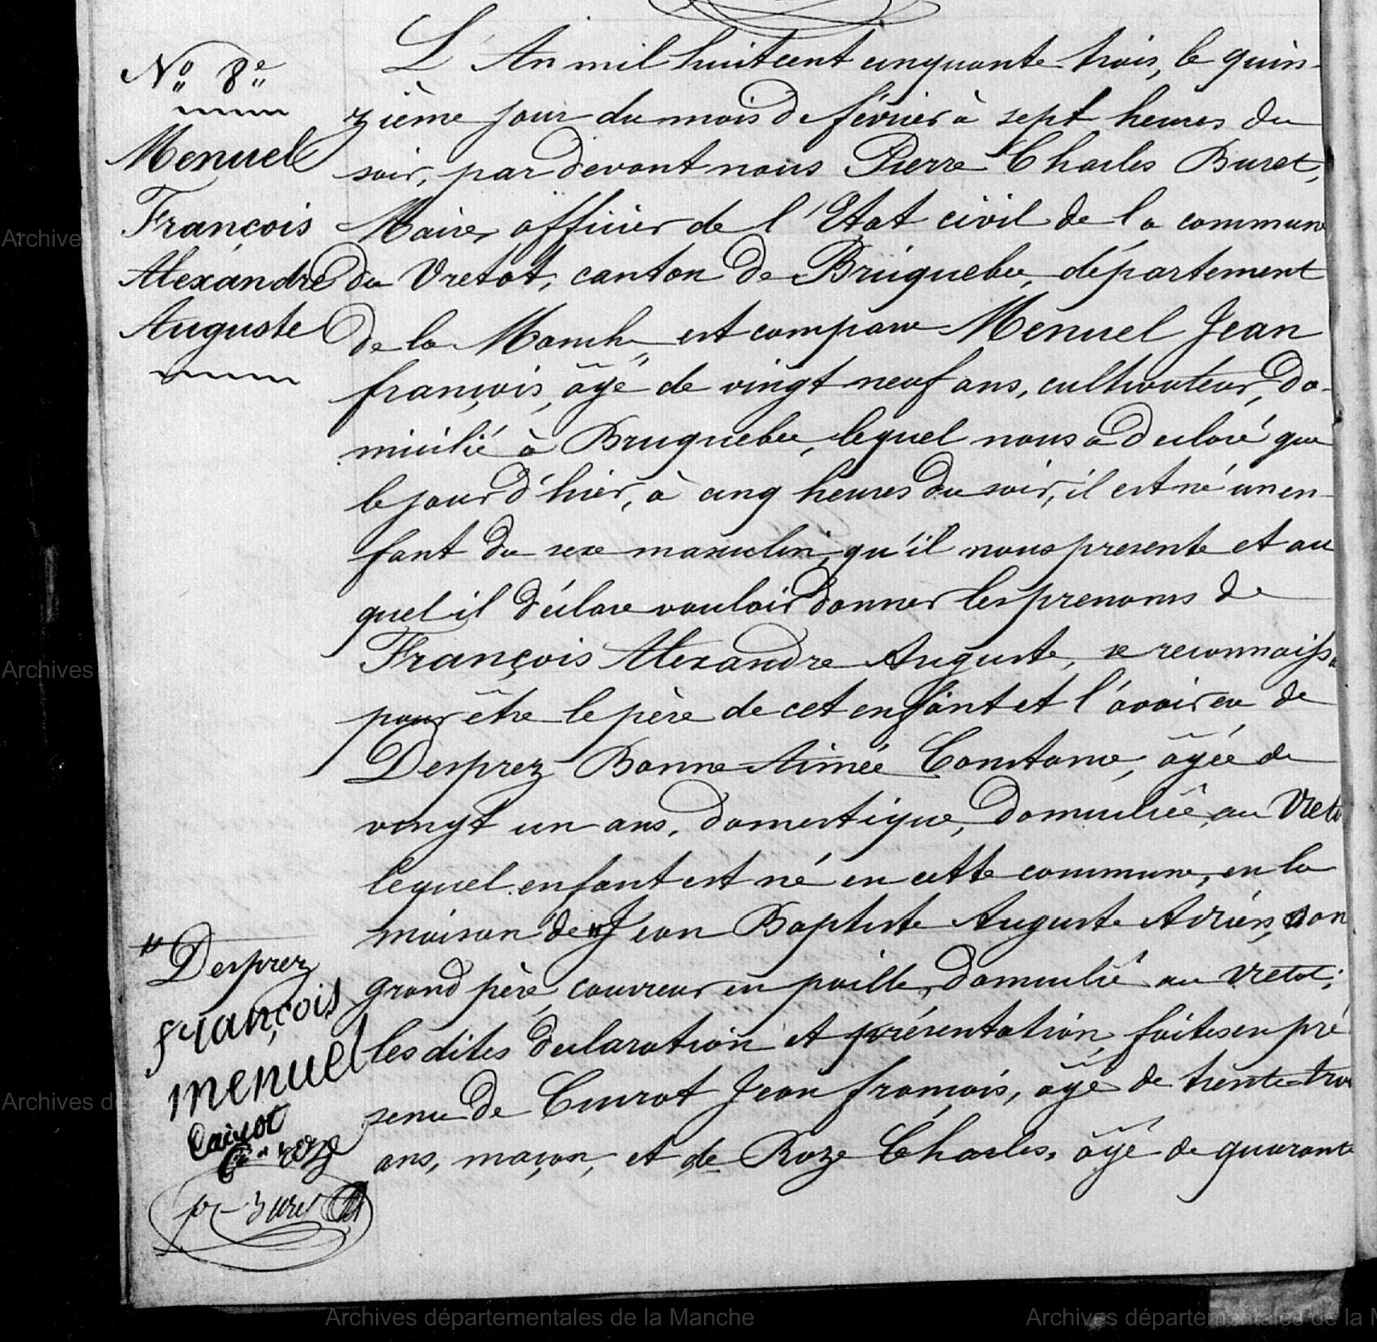 N° 8e
Menuel
François
Alexandre
Auguste
L'An mil huit cent cinquante trois, le quin-
zième jour du mois de février à sept heures du
soir, par devant nous Pierre Charles Buret,
Maire officier de l'Etat civil de la commune
du Vretot, canton de Briquebec, département
de la Manche est comparu Menuel Jean
françois, âgé de vingt neuf ans, cultivateur, do-
micilié à Bruquebec, lequel nous a declaré que
le jour d'hier, à cinq heures du soir, il est né un en-
fant du sexe masculin, qu'il nous presente et au
quel il déclare vouloir donner les prenoms de
François Alexandre Auguste, se reconnaiss
pour être le père de cet enfant et l'avoir eu de
Desprez Bonne Aimée Constance, âgée de
vingt un ans, domestique, domiciliée au Vretot
lequel enfant est né en cette commune, en la
maison de Jean Baptiste Auguste Adrien, son
grand père, couvreur en paille, domicilié au Vretot;
les dites declaration et présentation, faites en pré
sence de Cauvot Jean françois, âgé de trente trois
ans, maçon, et de Roze Charles, âgé de quarante
" Desprez
françois
menuel
Cauvot
Ch roze
pc Buret
Archives
Archives d
Archives d
Archives départementales de la Manche
Archives départementales de la M